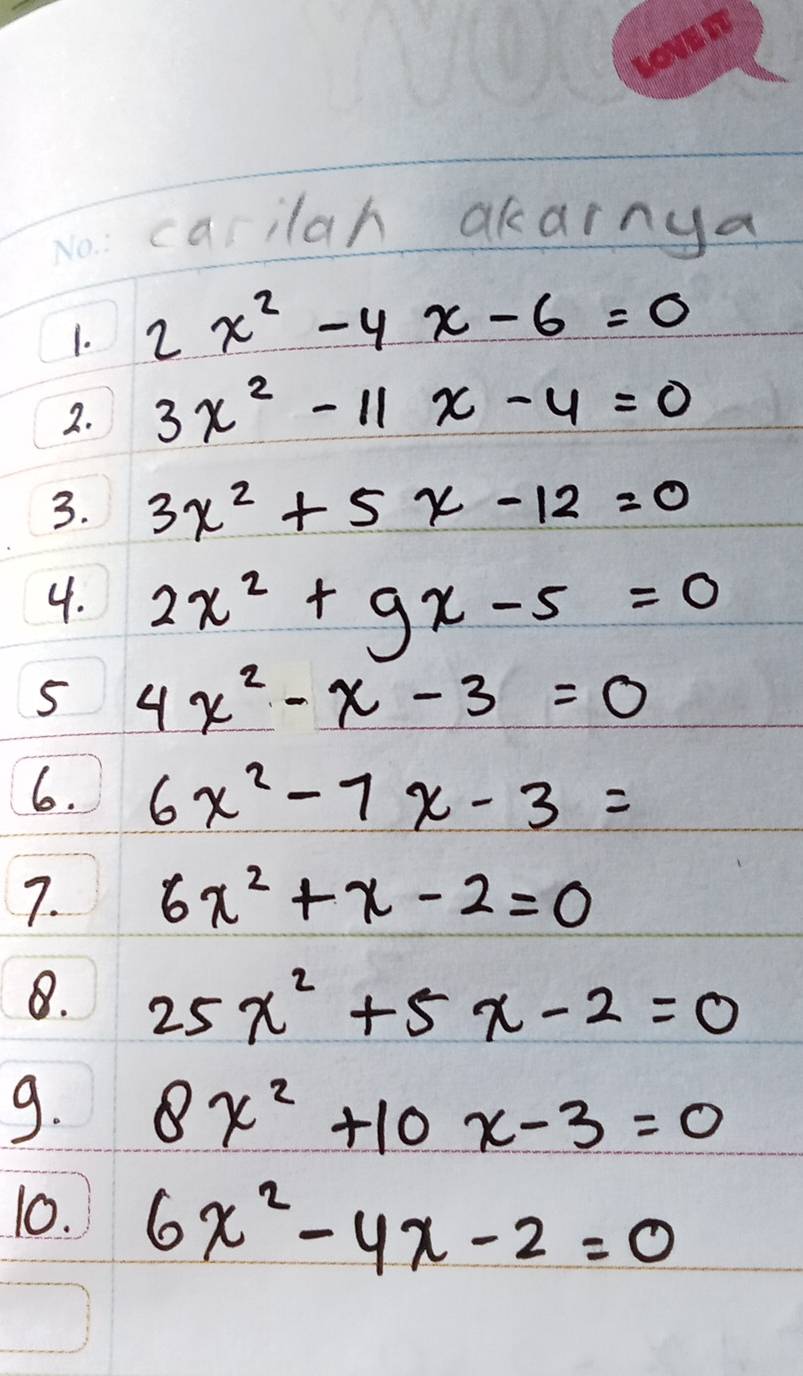 LOVE IT
No.: carilah akarnya
1. 2x² - 4x - 6 = 0
2. 3x² - 11x - 4 = 0
3. 3x² + 5x - 12 = 0
4. 2x² + 9x - 5 = 0
5 4x² - x - 3 = 0
6. 6x² - 7x - 3 =
7. 6x² + x - 2 = 0
8. 25x² + 5x - 2 = 0
9. 8x² + 10x - 3 = 0
10. 6x² - 4x - 2 = 0